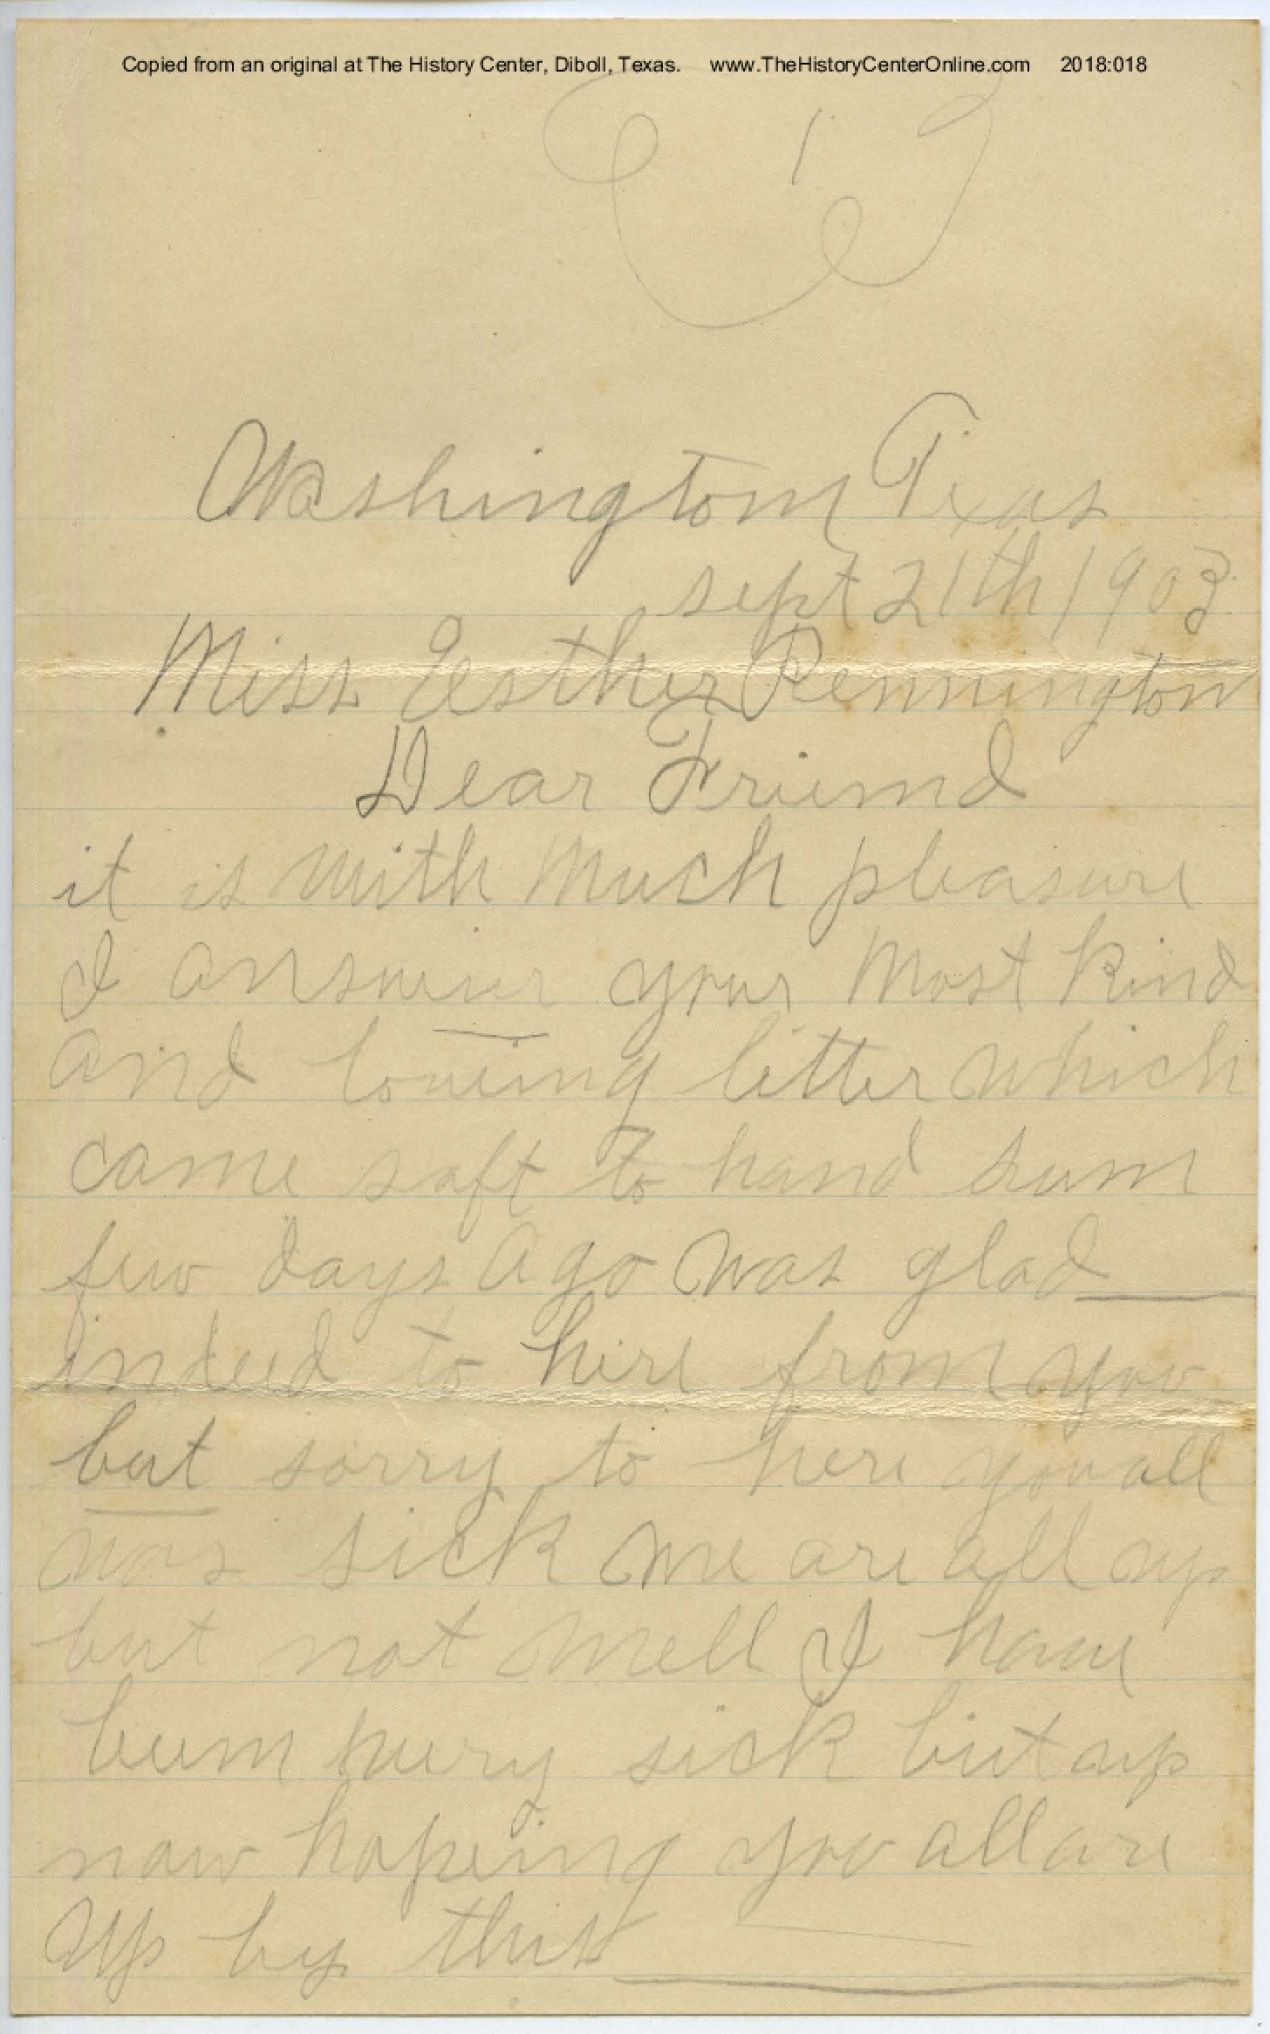 Copied from an original at The History Center, Diboll, Texas. www.TheHistoryCenterOnline.com 2018:018
1
Washington Texas
sept 21th 1903
Miss Esther Pennington
Dear Friend
it is with much pleasure
I answer your most kind
and loveing letter which
came saft to hand sum
few days ago was glad
indeed to hire from you
but sorry to here you all
was sick we are all up
but not well I have
beem very sick but up
now hopeing you all are
up by this